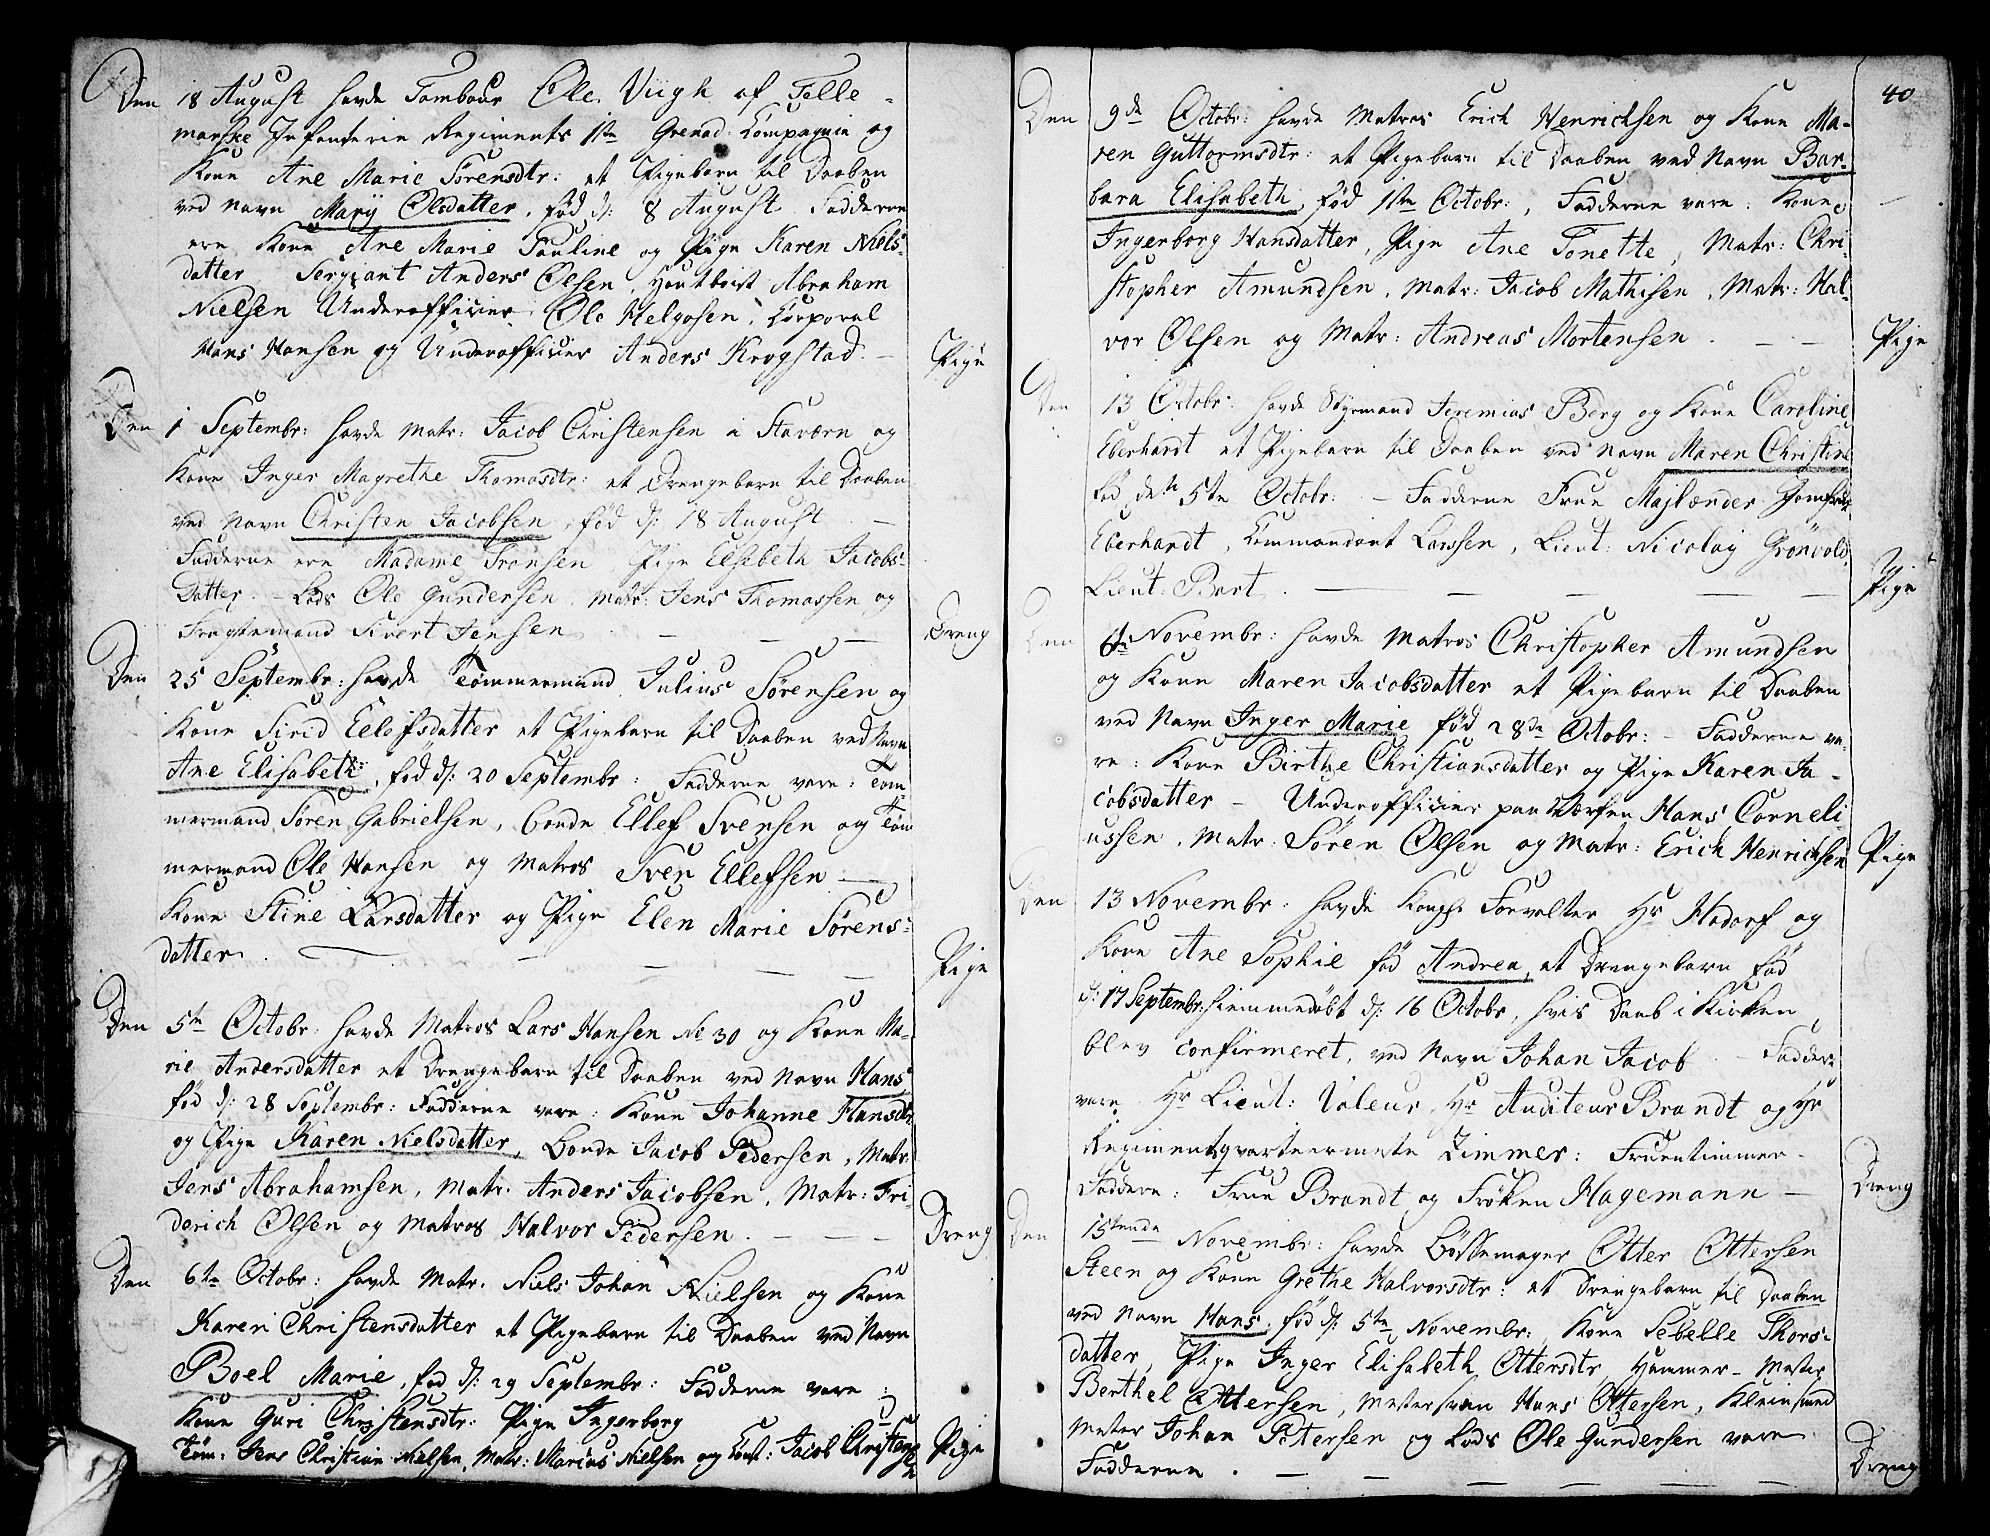 Den 18 August havde Tambour Ole Viigh af Telle-
marske Infanterie Regiments 1ste Grenad: Compagnie og
Kone Ane Marie Sørensdtr: et Pigebarn til Daaben
ved Navn Marÿ Olsdatter, fød d: 8 August. Fadderne
ere Kone Ane Marie Pauline og Pige Karen Niels-
datter Sergiant Anders Olsen, Houtboist Abraham
Nielsen Underofficier Ole Helgesen, Corporal
Hans Hansen og Underofficier Anders Krogstad. –
Pige
Den 1 Septembr: havde Matr: Jacob Christensen i Staværn og
Kone Inger Magrethe Thomasdtr: et Drengebarn til Daaben
ved Navn Christen Jacobsen, fød d: 18 August –
Fadderne ere Madame Fransen, Pige Elsebeth Jacobs-
Datter – Lods Ole Gundersen, Matr: Jens Thomassen og
Sivert Jensen
Dreng
Den 25 Septembr: havde Tømmermand Julius Sørensen og
Kone Sirid Ellefsdatter et Pigebarn til Daaben ved Navn
Ane Elisabeth, fød d: 20 Septembr: Fadderne vare: Tøm-
mermand Søren Gabrielsen, Bonde Ellef Svensen og Tøm
mermand Ole Hansen og Matros Sven Ellefsen –
Kone Stine Larsdatter og Pige Elen Marie Sørens-
datter.
Pige
Den 5te Octobr: havde Matros Lars Hansen No 30 og Kone Ma-
rie Andersdatter et Drengebarn til Daaben ved Navn Hans
fød d: 28 Septembr: Fadderne vare: Kone Johanne Hansdtr
og Pige Karen Nielsdatter, Bonde Jacob Pedersen, Matr:
Jens Abrahamsen, Matr. Anders Jacobsen, Matr: Fri-
derich Olsen og Matros Halvor Pedersen.
Dreng
Den 6te Octobr: havde Matr. Niels Johan Nielsen og Kone
Karen Christensdatter et Pigebarn til Daaben ved Navn
Boel Marie, fød d: 29 Septembr: Fadderne vare:
Kone Guri Christensdtr: Pige Ingerborg
Tøm: Jens Christian Nielsen, Matr: Marius Nielsen og Jacob Christensen
Pige
40
Den 9de Octobr: havde Matros Erich Henrichsen og Kone Ma-
ren Guttormsdtr: et Pigebarn til Daaben ved Navn Bar-
bara Elisabeth, fød 1ste Octobr:, Fadderne vare: Kone
Ingerborg Hansdatter, Pige Ane Tonette, Matr: Chri-
stopher Amundsen, Matr: Jacob Mathisen, Matr: Hal-
vor Olsen og Matr: Andreas Mortensen. – –
Pige
Den 13 Octobr: havde Styrmand Jeremias Berg og Kone Caroline
Eberhardt et Pigebarn til Daaben ved Navn Maren Christine
fød den 5te Octobr: – Fadderne Frue Majlænder Jomfrue
Eberhardt, Commandant Larssen, Lieut: Nicolay Grønvold,
Lieut: Bart.
Pige
Den 6te Novembr: havde Matros Christopher Amundsen
og Kone Maren Jacobsdatter et Pigebarn til Daaben
ved Navn Inger Marie fød 28de Octobr: – Fadderne va-
re: Kone Birthe Christiansdatter og Pige Karen Ja-
cobsdatter – Underofficier paa Værfen Hans Corneli-
ussen, Matr: Søren Olsen og Matr: Erich Henrichsen
Pige
Den 13 Novembr: havde Forvalter Hr Hadorf og
Kone Ane Sophie fød Andrea, et Drengebarn fød
d: 17 Septembr: hiemmedøbt d: 16 Octobr, hvis Daab i Kirken
blev confirmeret, ved Navn Johan Jacob. – Faddere
vare Hr Lieut: Valeur, Hr Auditeur Brandt og Hr
Regimentsqvarteermester Zimmer: Fruentimmer-
Faddere: Frue Brandt og Frøken Hagemann –
Dreng
Den 15tende Novembr: havde Bøssemager Otter Ottersen
Steen og Kone Grethe Halvorsdtr: et Drengebarn til Daaben
ved Navn Hans, fød d: 5te Novembr:, Kone Sebelle Thors-
datter, Pige Inger Elisabeth Ottersdtr, Hammer-Mester
Berthel Ottersen, Mestersvend Hans Ottersen, Kleinsmed
Mester Johan Petersen og Lods Ole Gundersen vare
Fadderne.
Dreng